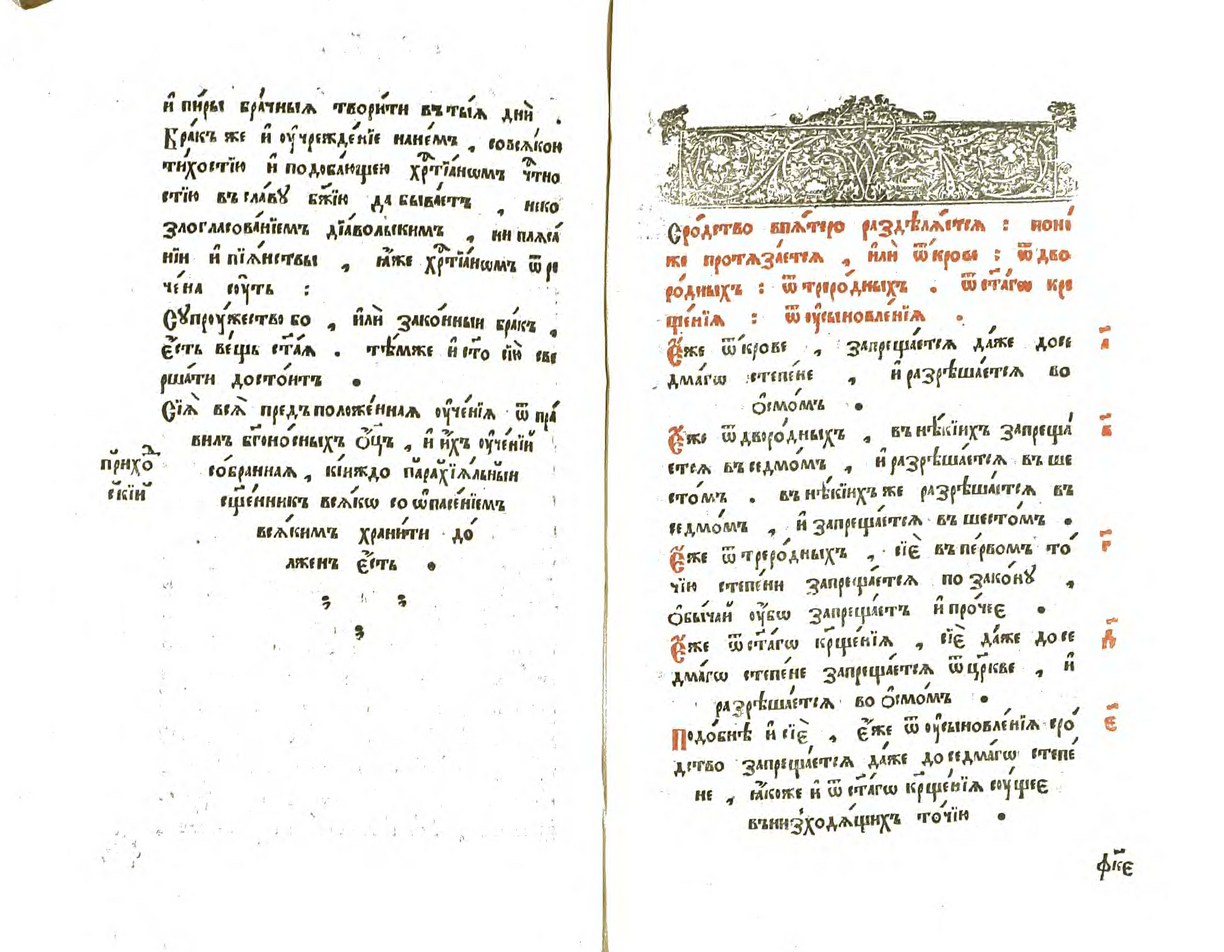 и҆ пи́ры бра́чныѧ твори́ти въ ты́ѧ дни̑ .
Бра́къ же и҆ оу҆чрежде́нїе нане́мъ , совсѧ́кою
ти́хостїю и҆ подоба́ющею хрⷭ҇тїа́нѡмъ чⷭ҇тно
стїю въ сла́ву бж҃їю да быва́етъ , неко
злогласова́нїемъ дїа́вольскимъ , ни плѧса́
нїи и҆ пїѧ́нствы , ꙗ҆́же хрⷭ҇тїа́нѡмъ ѿ ре
че́на сꙋ́ть :
Сꙋпрꙋ́жество бо , и҆лѝ зако́нныи бра́къ ,
є҆́сть ве́щь ст҃а́ѧ . тѣ́мже и҆ ст҃о сїю̀ све
рша́ти досто́итъ .
Сїѧ̑ всѧ̑ предъположе́ннаѧ оу҆че́нїѧ ѿ пра́
вилъ бг҃оно́сныхъ ѻ҆ц҃ъ , и҆ и҆́хъ оу҆че́нїй
со́браннаѧ , кі́иждо парахїѧ́льныи
сщ҃е́нникъ всѧ́кѡ со ѡ҆пасе́нїемъ
всѧ́кимъ храни́ти до́
лженъ є҆́сть .
прихо́д
скїи
Сро́дство впѧ́теро раздѣлѧ́етсѧ : пони́
же протѧза́етсѧ , и҆лѝ ѿ кро́ве : ѿ дво
ро́дныхъ : ѿ треро́дныхъ . ѿ ст҃а́гѡ кре
ще́нїѧ : ѿ оу҆сыновле́нїѧ .
Є҆́же ѿ кро́ве , запреща́етсѧ да́же до се
дма́гѡ степе́не , и҆ разрѣша́етсѧ во
ѻ҆смо́мъ .
а҃
Є҆́же ѿ дворо́дныхъ , въ нѣ́кїихъ запреща́
етсѧ въ седмо́мъ , и҆ разрѣша́етсѧ въ ше
сто́мъ . въ нѣ́кїихъ же разрѣша́етсѧ въ
седмо́мъ , и҆ запреща́етсѧ въ шесто́мъ .
в҃
Є҆́же ѿ треро́дныхъ , сїѐ въ пе́рвомъ то́
чїю степе́ни запреща́етсѧ по зако́нꙋ ,
ѻ҆бы́чай оу҆́бѡ запреща́етъ и҆ про́чеє .
г҃
Є҆́же ѿ ст҃а́гѡ крⷭ҇ще́нїѧ , сїѐ да́же до се
дма́гѡ степе́не запреща́етсѧ ѿ цр҃кве , и҆
разрѣша́етсѧ во ѻ҆смо́мъ .
д҃
Подо́бнѣ и҆ сїѐ , є҆́же ѿ оу҆сыновле́нїѧ сро́
дство запреща́етсѧ да́же до седма́гѡ степе́
не , ꙗ҆́коже и҆ ѿ ст҃а́гѡ крⷭ҇ще́нїѧ сꙋ́щеє
въ низходѧ́щихъ то́чїю .
є҃
фк҃є